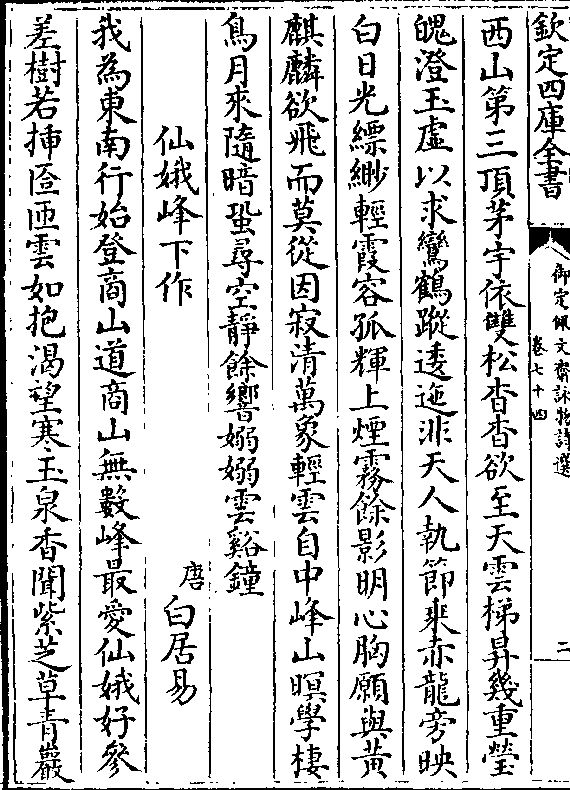 欽定四庫全書
御定佩文齋詠物詩選
卷七十四
二
西山第三頂茅宇依雙松杳杳欲至天雲梯昇幾重瑩
魄澄玉虛以求鸞鶴蹤逶迤非天人執節乘赤龍旁映
白日光縹緲輕霞容孤輝上煙霧餘影明心胸願與黃
麒麟欲飛而莫從因寂清萬象輕雲自中峰山暝學棲
鳥月來隨暗蛩尋空靜餘響嫋嫋雲谿鐘
仙娥峰下作
唐 白居易
我為東南行始登商山道商山無數峰最愛仙娥好參
差樹若揷匼匝雲如抱渴望寒玉泉香聞紫芝草青巖